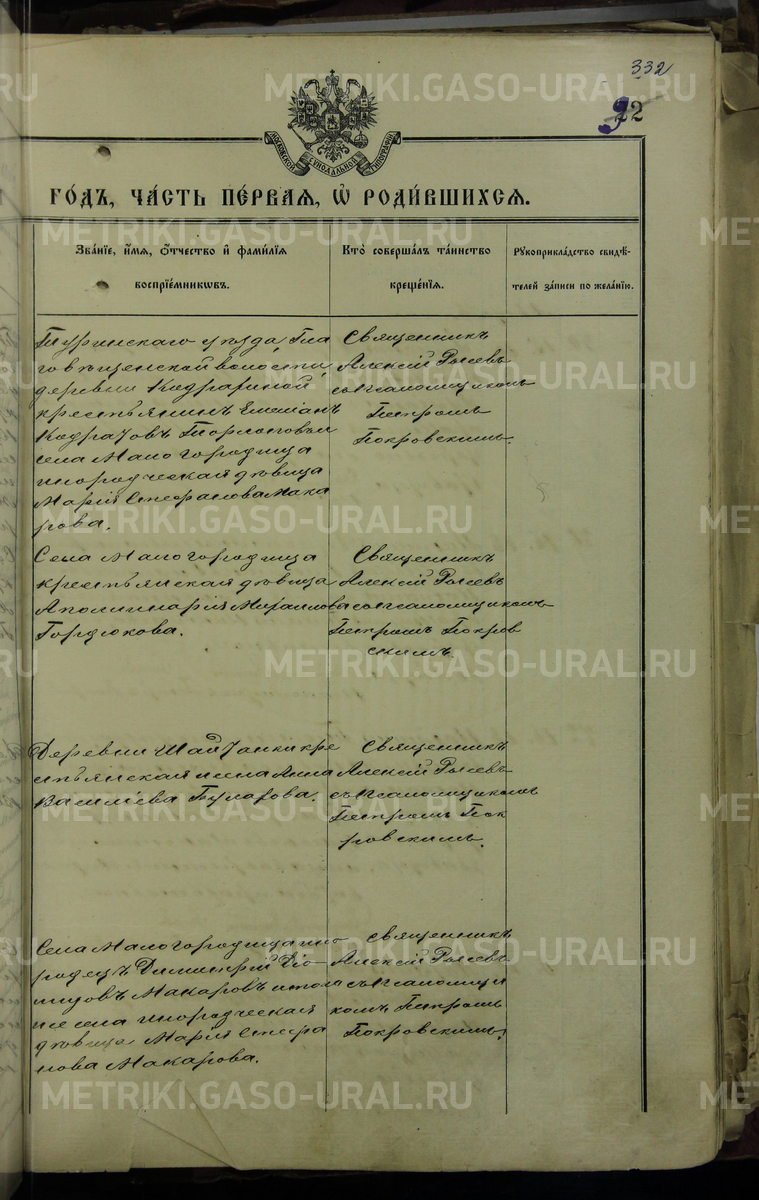 332
92
МОСКОВСКОЙ СѴНОДАЛЬНОЙ ТИПОГРАФІИ
ГО́ДЪ, ЧА́СТЬ ПЕ́РВАЯ, Ѽ РОДИ́ВШИХСЯ.
Зва́нїе, и́мя, о́тчество и҆ фами́лїя
воспрїе́мниковъ.
Кто̀ соверша́лъ та́инство
креще́нїя.
Рꙋкоприкла́дство свидѣ́-
телей за́писи по жела́нїю.
Туринскаго уѣзда, Бла
говѣщенской волости,
деревни
крестьянинъ Емелiанъ
села Малогородища
инородческая дѣвица
Марiя Стефанова Мака
рова.
Священникъ
Алексiй Рысевъ
съ псаломщикомъ
Петромъ
Покровскимъ.
Села Малогородища
крестьянская дѣвица
Аполлинарiя
Гордюкова.
Священникъ
Алексiй Рысевъ
съ псаломщикомъ
Петромъ Покров
скимъ.
Деревни Шайтанки кре
стьянская жена Анна
Василiева
Священникъ
Алексiй Рысевъ
съ псаломщикомъ
Петромъ Пок
ровскимъ.
Села Малогородища ино
родецъ Димитрiй Дiо
мидовъ Макаровъ и того
же села инородческая
дѣвица Марiя Стефа
нова Макарова.
Священникъ
Алексiй Рысевъ
съ псаломщи
комъ Петромъ
Покровскимъ.
METRIKI.GASO-URAL.RU